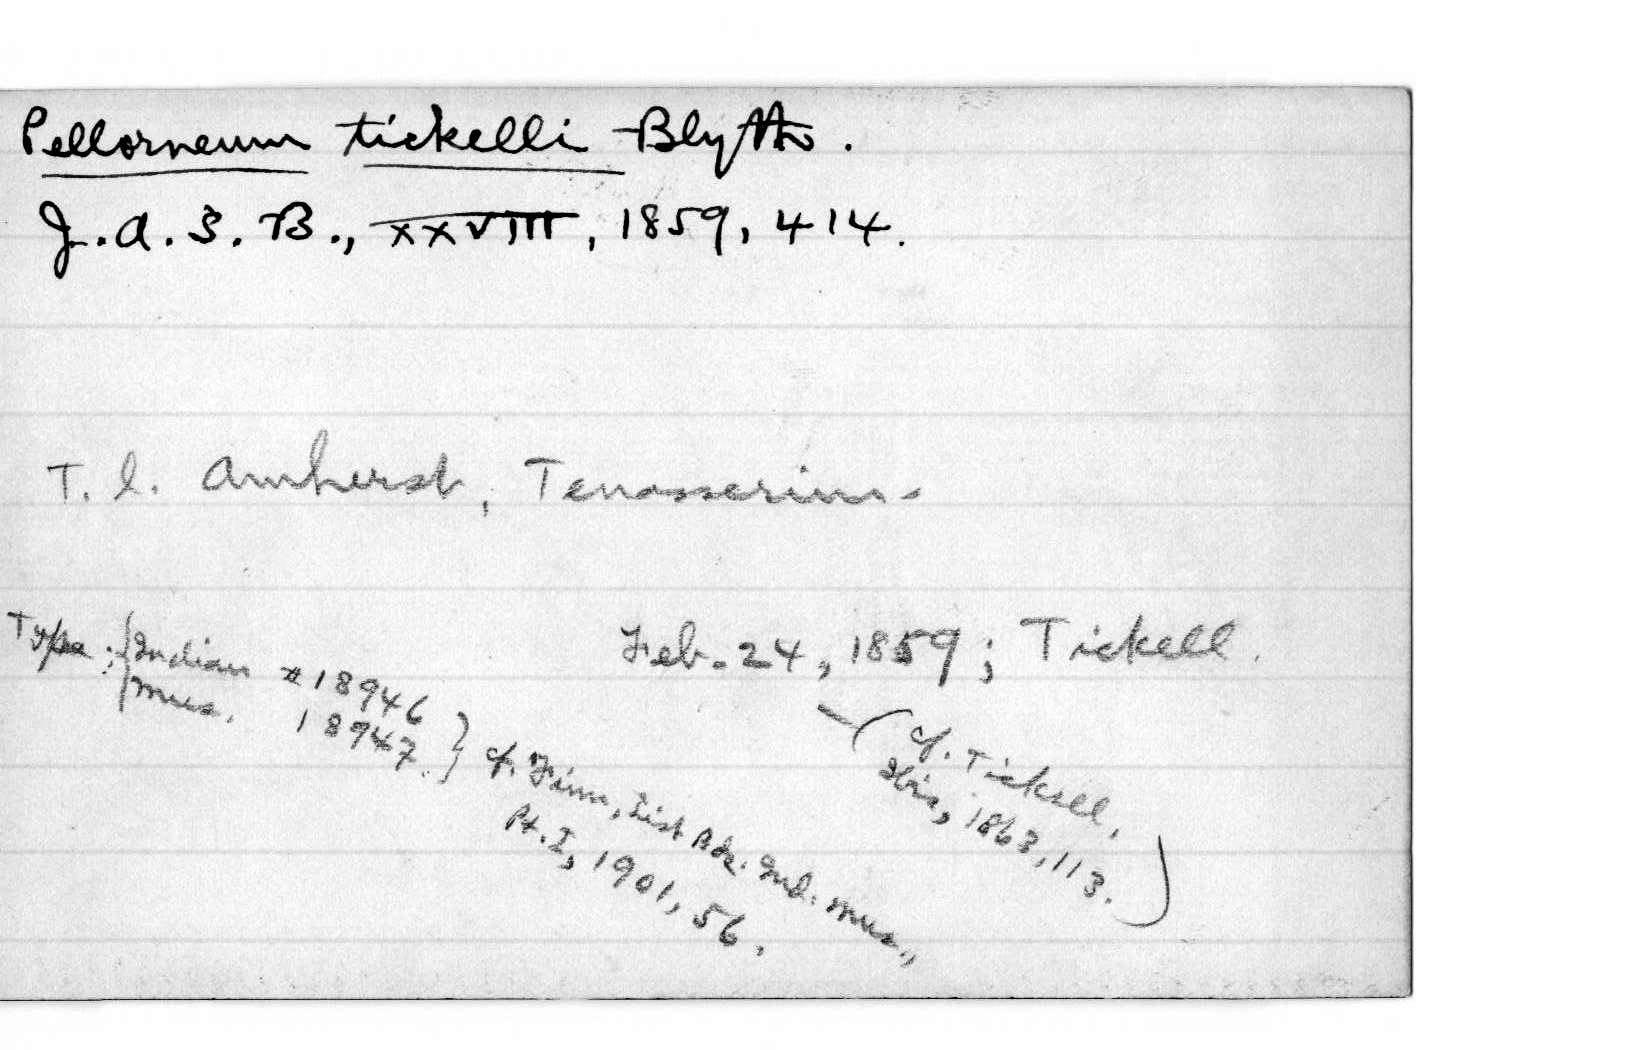 Pellorneum tickelli Blyth.
J. A. S. B., XXVIII, 1859, 414.
T. l. Amherst, Tenasserim.
Type: { Indian Mus. #18946
18947. } cf. Finn, List Bds. Ind. Mus.,
Pt. I, 1901, 56.
Feb. 24, 1859; Tickell.
— (cf. Tickell,
Ibis, 1863, 113.)